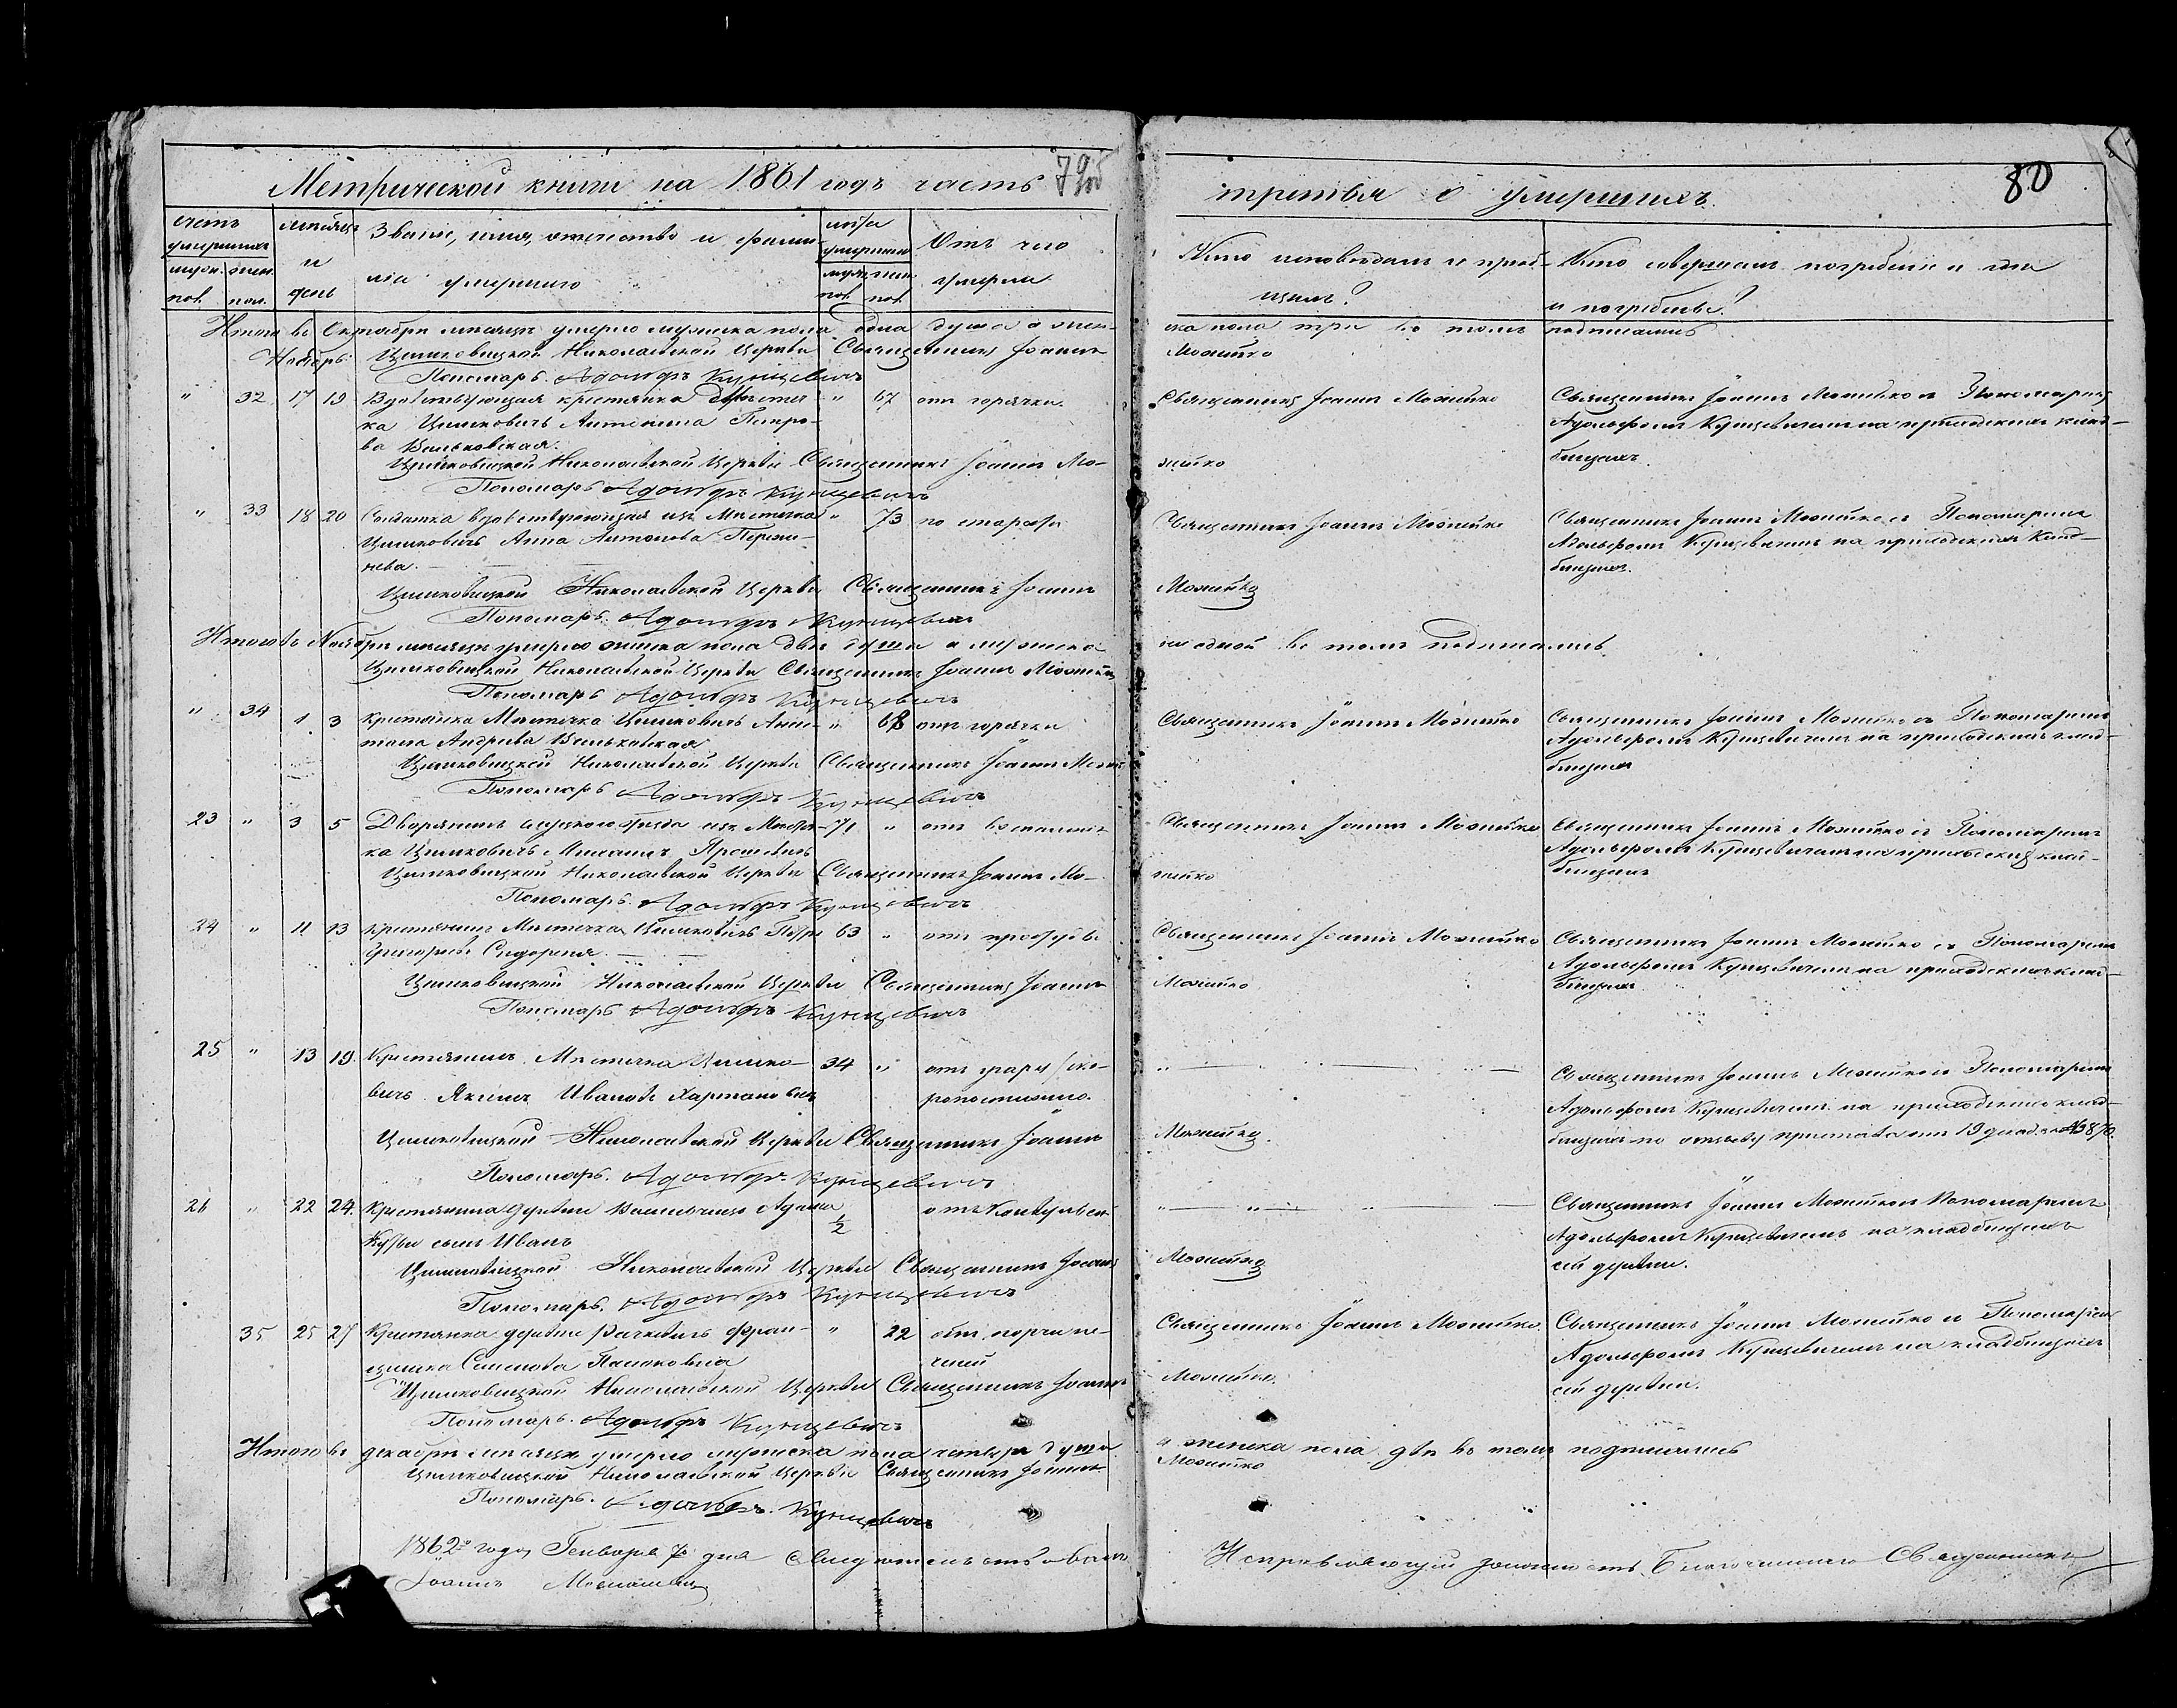 Метрической книги на 1861 годъ часть
79об
третья о умершихъ.
80
счетъ умершихъ
муж. пол.
жен. пол.
месяцъ и день
Званіе, имя, отчество и фами-
лія умершаго
лѣта умершаго
муж. пол.
жен. пол.
Отъ чего
умерли
Кто исповѣдалъ и пріоб-
щилъ?
Кто совершалъ погребеніе и гдѣ
и погребены?
Итого въ Октябрѣ мѣсяцѣ умерло мужеска пола одна душа а жен-
ска пола три въ томъ подписались
Ноябрь
Цимковицкой Николаевской Церкви Священникъ Іоаннъ
Можейко
Пономарь Адольфъ Кунцевичъ
" 32 17 19 Вдовствующая крестьянка Мѣстеч-
ка Цимковичъ Антонина Петро-
ва Вильковская.
" 67 отъ горячки.
Священникъ Іоаннъ Можейко
Священникъ Іоаннъ Можейко съ Пономаремъ
Адольфомъ Кунцевичемъ на приходскихъ клад-
бищахъ.
Цимковицкой Николаевской Церкви Священникъ Іоаннъ Мо-
жейко
Пономарь Адольфъ Кунцевичъ
" 33 18 20 Солдатка вдовствующая изъ Мѣстечка
Цимковичъ Анна Антонова
" 73 по старости
Священникъ Іоаннъ Можейко
Священникъ Іоаннъ Можейко съ Пономаремъ
Адольфомъ Кунцевичемъ на приходскихъ клад-
бищахъ.
Цимковицкой Николаевской Церкви Священникъ Іоаннъ
Можейко
Пономарь Адольфъ Кунцевичъ
Итого въ Ноябрѣ мѣсяцѣ умерло женска пола двѣ души а мужеска
ни одной въ томъ подписались
Цимковицкой Николаевской Церкви Священникъ Іоаннъ Можейко
Пономарь Адольфъ Кунцевичъ
" 34 1 3 Крестьянка Мѣстечка Цимковичъ
Андреева Вильковская
" 68 отъ горячки
Священникъ Іоаннъ Можейко
Священникъ Іоаннъ Можейко съ Пономаремъ
Адольфомъ Кунцевичемъ на приходскихъ клад-
бищахъ
Цимковицкой Николаевской Церкви Священникъ Іоаннъ
Пономарь Адольфъ Кунцевичъ
23 " 3 5 Дворянинъ Слуцкого уѣзда изъ Мѣстеч-
ка Цимковичъ Михаилъ
71 " отъ
Священникъ Іоаннъ Можейко
Священникъ Іоаннъ Можейко съ Пономаремъ
Адольфомъ Кунцевичемъ на приходскихъ клад-
бищахъ
Цимковицкой Николаевской Церкви Священникъ Іоаннъ Мо-
жейко
Пономарь Адольфъ Кунцевичъ
24 " 11 13 Крестьянинъ Мѣстечка Цимковичъ Петръ
Григорьевъ
63 " отъ простуды
Священникъ Іоаннъ Можейко
Священникъ Іоаннъ Можейко съ Пономаремъ
Адольфомъ Кунцевичемъ на приходскихъ клад-
бищахъ.
Цимковицкой Николаевской Церкви Священникъ Іоаннъ
Можейко
Пономарь Адольфъ Кунцевичъ
25 " 13 19. Крестьянинъ Мѣстечка Цимко-
вичъ Якимъ Ивановъ Хартановичъ
34 " отъ ско-
ропостижно.
Священникъ Іоаннъ Можейко съ Пономаремъ
Адольфомъ Кунцевичемъ на приходскихъ клад-
бищахъ по отзыву пристава отъ 19 декаб. за № 3870.
Цимковицкой Николаевской Церкви Священникъ Іоаннъ
Можейко.
Пономарь. Адольфъ Кунцевичъ
26 " 22 24. Крестьянина деревни Адама
сынъ Иванъ
1/2
отъ Конвульсій
Священникъ Іоаннъ Можейко съ Пономаремъ
Адольфомъ Кунцевичемъ на кладбищахъ
сей деревни.
Цимковицкой Николаевской Церкви Священникъ Іоаннъ
Можейко
Пономарь. Адольфъ Кунцевичъ
35 25 27 Крестьянка деревни Рачкевичъ Фран-
цишка
" 22
Священникъ Іоаннъ Можейко.
Священникъ Іоаннъ Можейко съ Пономаремъ
Адольфомъ Кунцевичемъ на кладбищахъ
сей деревни.
Цимковицкой Николаевской Церкви Священникъ Іоаннъ
Можейко.
Пономарь. Адольфъ Кунцевичъ
Итого въ декабрѣ мѣсяцѣ умерло мужеска пола четыре души
а женска пола двѣ въ томъ подписались
Цимковицкой Николаевской Церкви Священникъ Іоаннъ
Можейко
Пономарь. Адольфъ Кунцевичъ
1862го года Генваря 7 дня свидѣтельствовалъ
Исправляющій должность Благочиннаго Священникъ
Іоаннъ